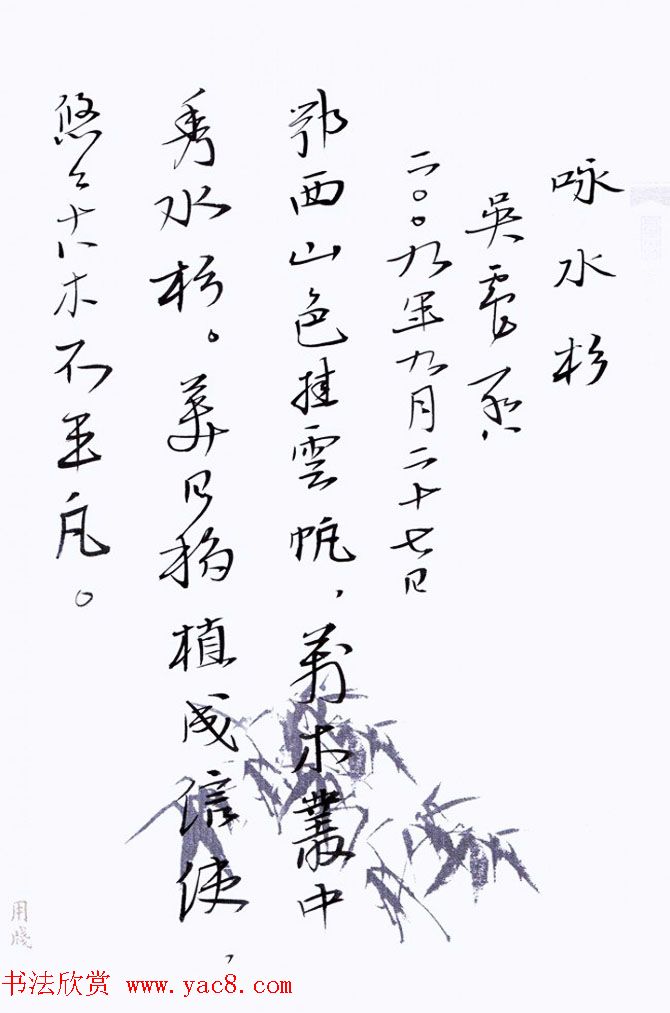 咏水杉
吳
二〇〇九年九月二十七日
鄂西山色挂雲帆，萬木叢中
秀水杉。美日移植成信使，
悠々木不平凡。
用牋
书法欣赏 www.yac8.com